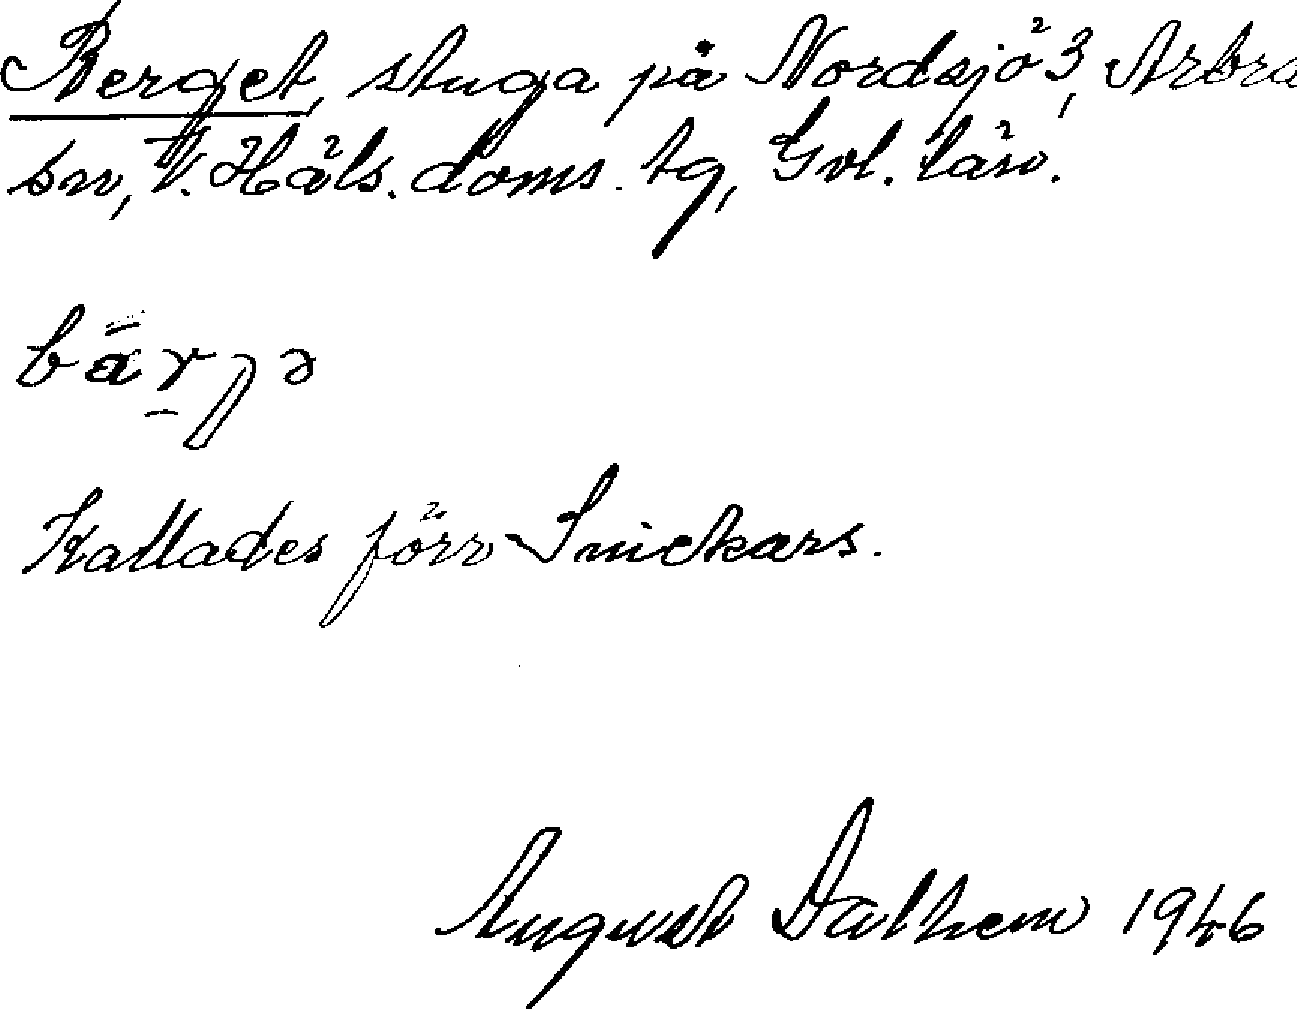 Berget, stuga på Nordsjö 3, Arbrå
sn, V. Häls. doms. tg, Gvl. län.
Kallades förr Snickars.
August Dalhem 1946